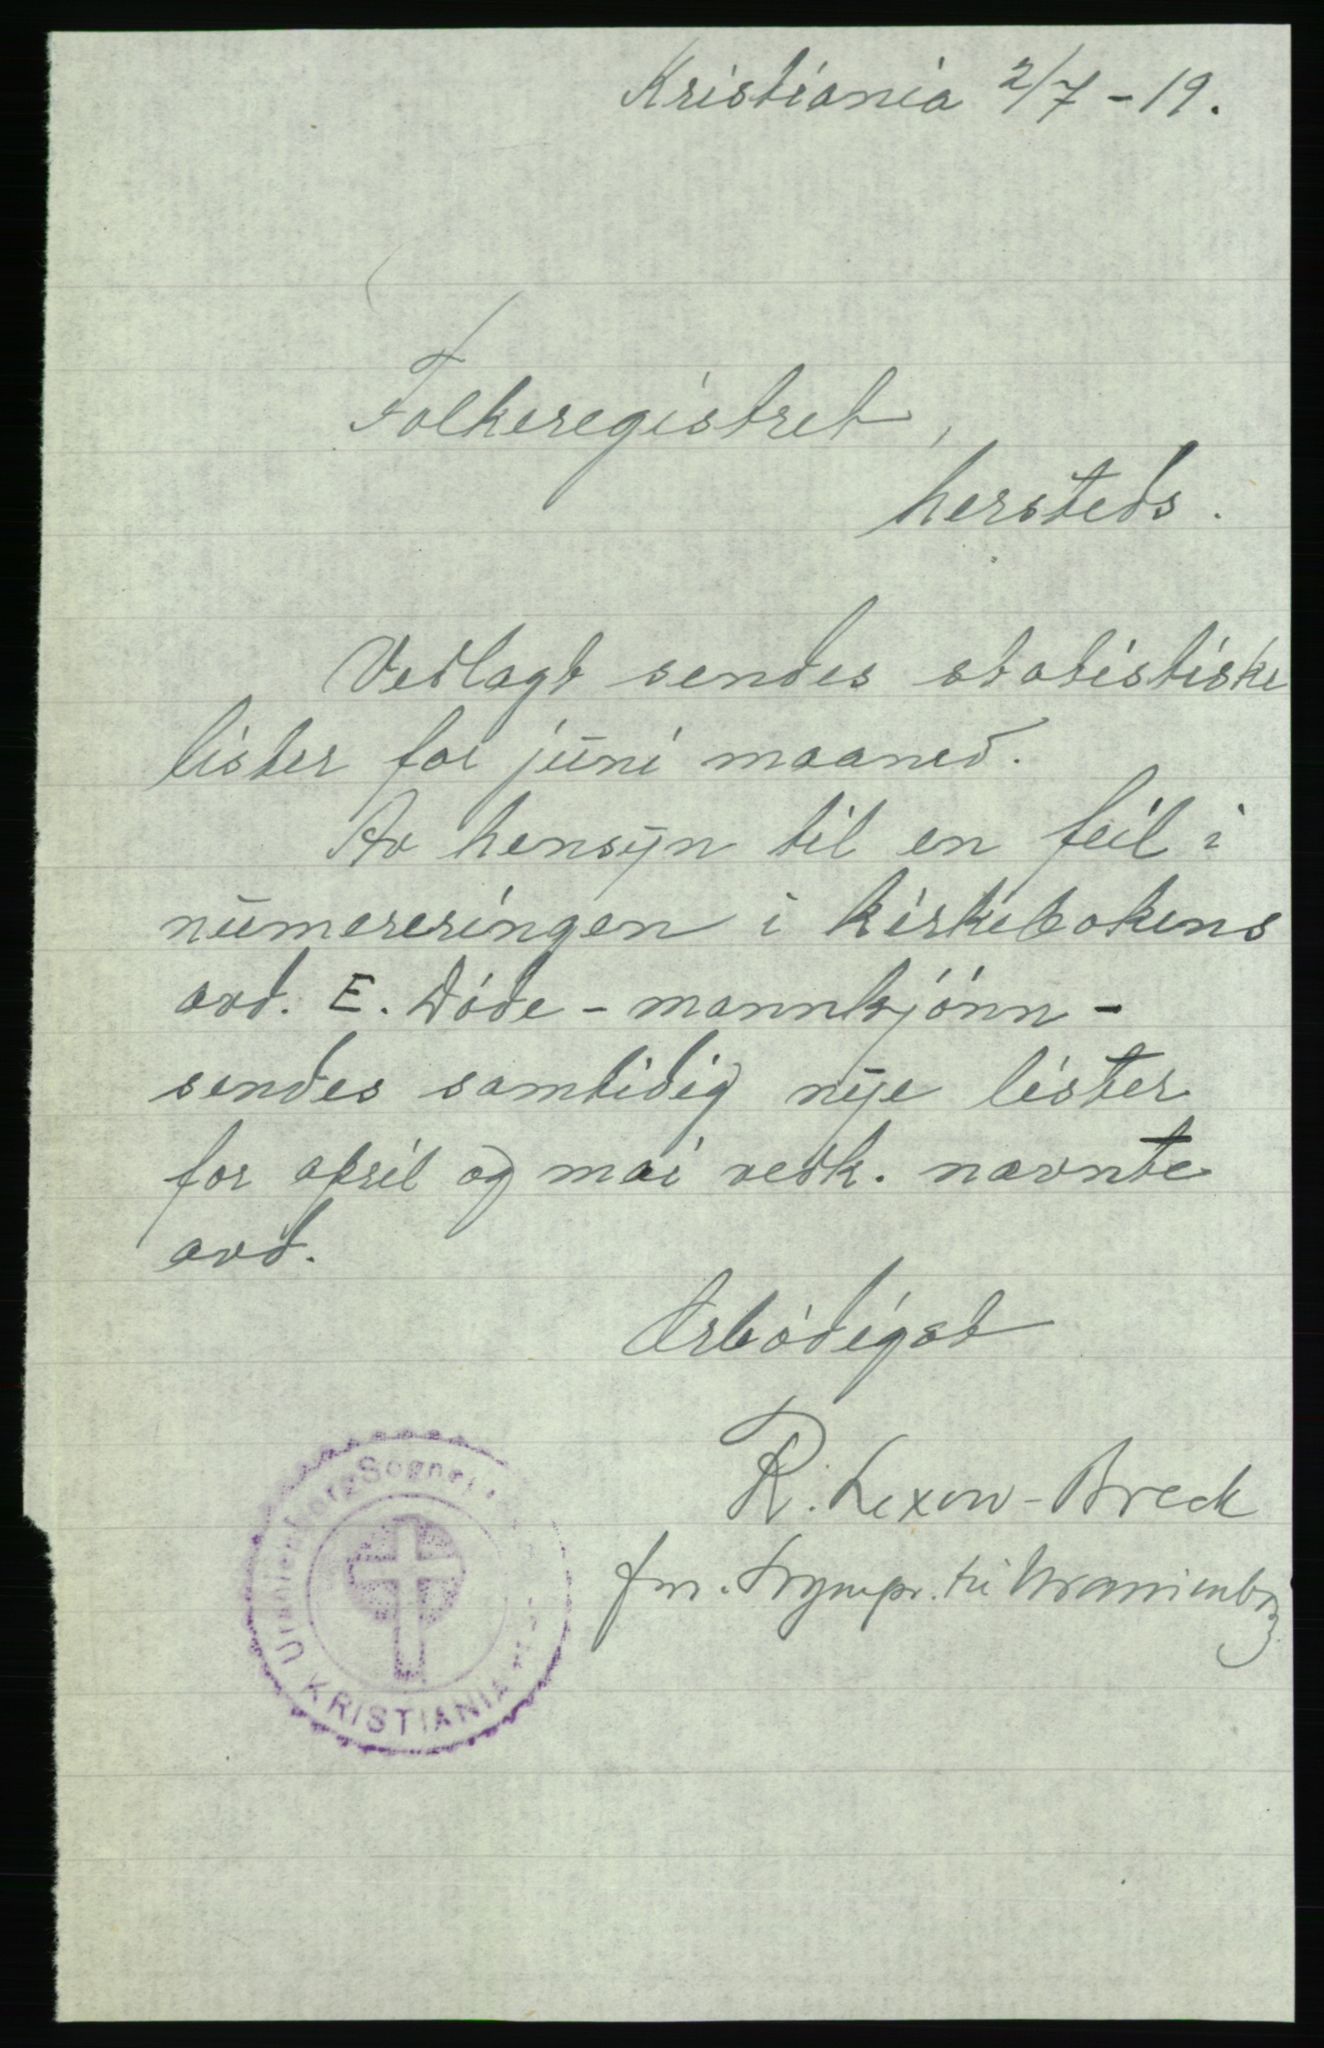 Kristiania 2/7 - 19.
Folkeregistret,
hersteds.
Vedlagt sendes statistiske
lister for juni maaned.
Av hensyn til en feil i
nümereringen i kirkebokens
avd. E. Døde - mannkjønn -
sendes samtidig nye lister
for april og mai vedk. nævnte
avd.
Ærbødigst
R. Lexow-Breck
fm. Sognepr. til Uranienborg
Uranienborg Sogne
KRISTIANIA